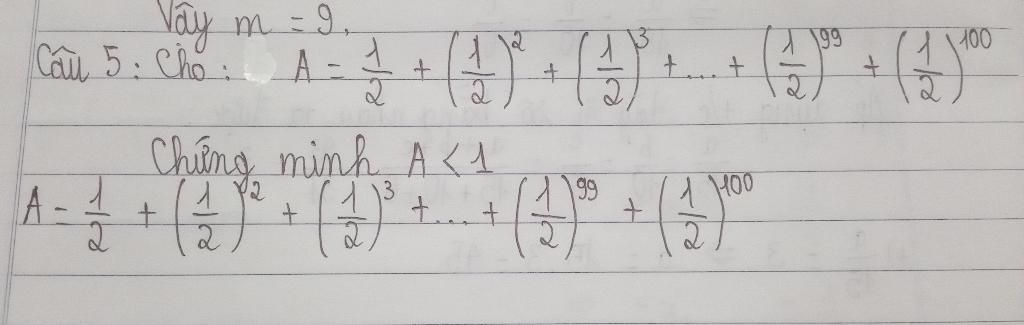 Vậy m = 9.
Câu 5: Cho: A = 1/2 + (1/2)^2 + (1/2)^3 + ... + (1/2)^99 + (1/2)^100
Chứng minh A < 1
A = 1/2 + (1/2)^2 + (1/2)^3 + ... + (1/2)^99 + (1/2)^100